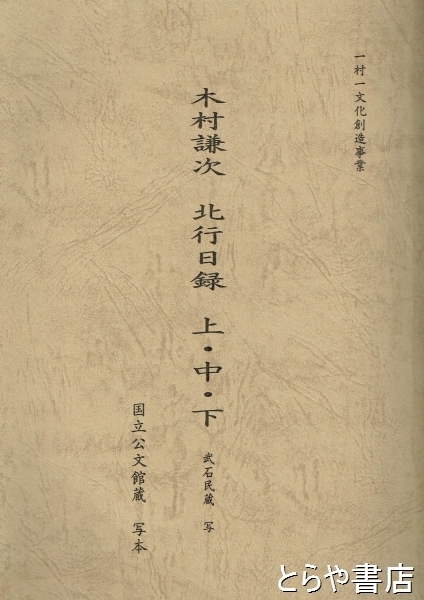 一村一文化創造事業
木村謙次 北行日録 上・中・下
武石民蔵 写
国立公文館蔵 写本
とらや書店